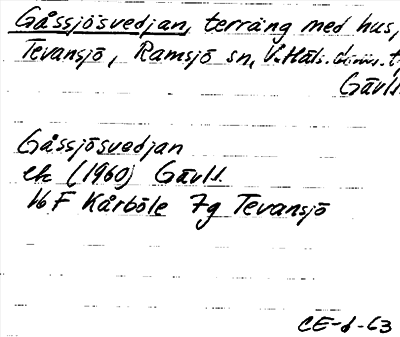 Gåssjösvedjan, terräng med hus,
Tevansjö, Ramsjö sn, V. Häls. doms. t,
Gävl.
Gåssjösvedjan
ek (1960) Gävl l.
16 F Kårböle 7g Tevansjö
CE-d-63